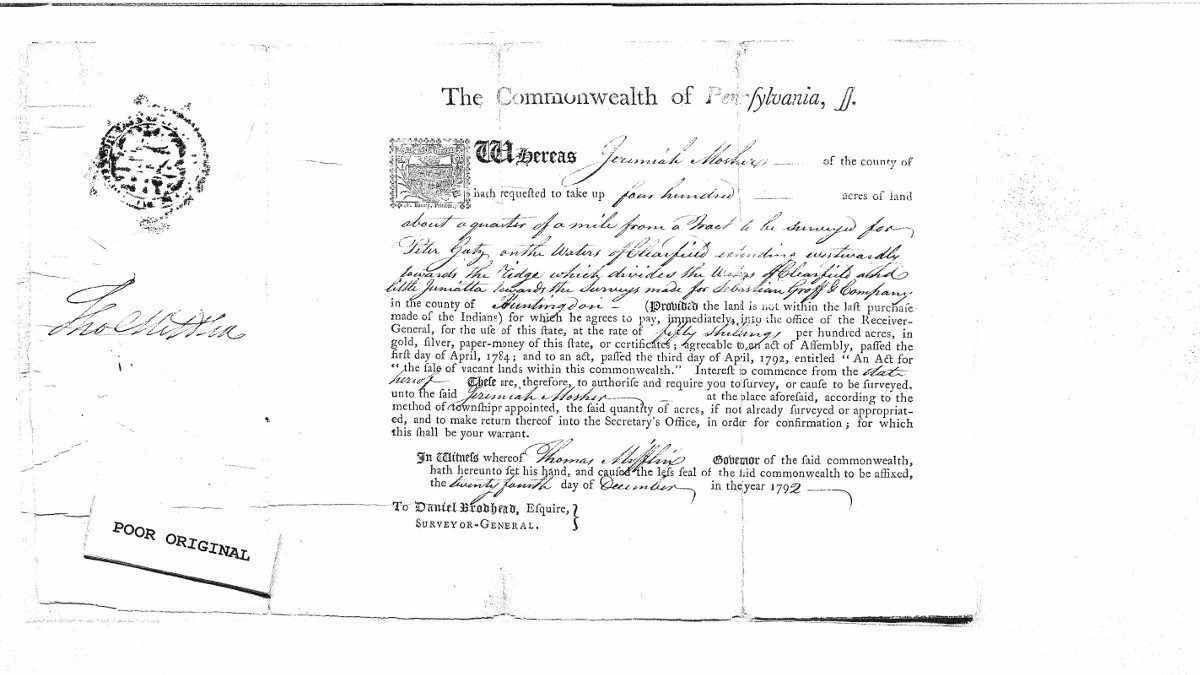 The Commonwealth of Pennſylvania, ſſ.
WHEREAS Jeremiah Mosher of the county of
hath requeſted to take up four hundred acres of land
about a quarter of a mile from a Tract to be surveyed for
Peter Gatz on the Waters of Clearfield extending westwardly
towards the Ridge which divides the Waters of Clearfield and
little Juniatta towards the Surveys made for Sebastian Groff & Company
in the county of Huntingdon — (Provided the land is not within the laſt purchaſe
made of the Indians) for which he agrees to pay, immediately, into the office of the Receiver-
General, for the uſe of this ſtate, at the rate of fifty shillings per hundred acres, in
gold, ſilver, paper-money of this ſtate, or certificates; agreeable to an act of Aſſembly, paſſed the
firſt day of April, 1784; and to an act, paſſed the third day of April, 1792, entitled “ An Act for
“ the ſale of vacant lands within this commonwealth.” Intereſt to commence from the date
hereof Theſe are, therefore, to authoriſe and require you to ſurvey, or cauſe to be ſurveyed.
unto the ſaid Jeremiah Mosher at the place aforeſaid, according to the
method of townſhips appointed, the ſaid quantity of acres, if not already ſurveyed or appropriat-
ed, and to make return thereof into the Secretary's Office, in order for confirmation; for which
this ſhall be your warrant.
In Witneſs whereof Thomas Mifflin Governor of the ſaid commonwealth,
hath hereunto ſet his hand, and cauſed the leſs ſeal of the ſaid commonwealth to be affixed,
the twenty fourth day of December in the year 1792
To Daniel Brodhead, Eſquire,
SURVEYOR-GENERAL.
Tho Mifflin
POOR ORIGINAL